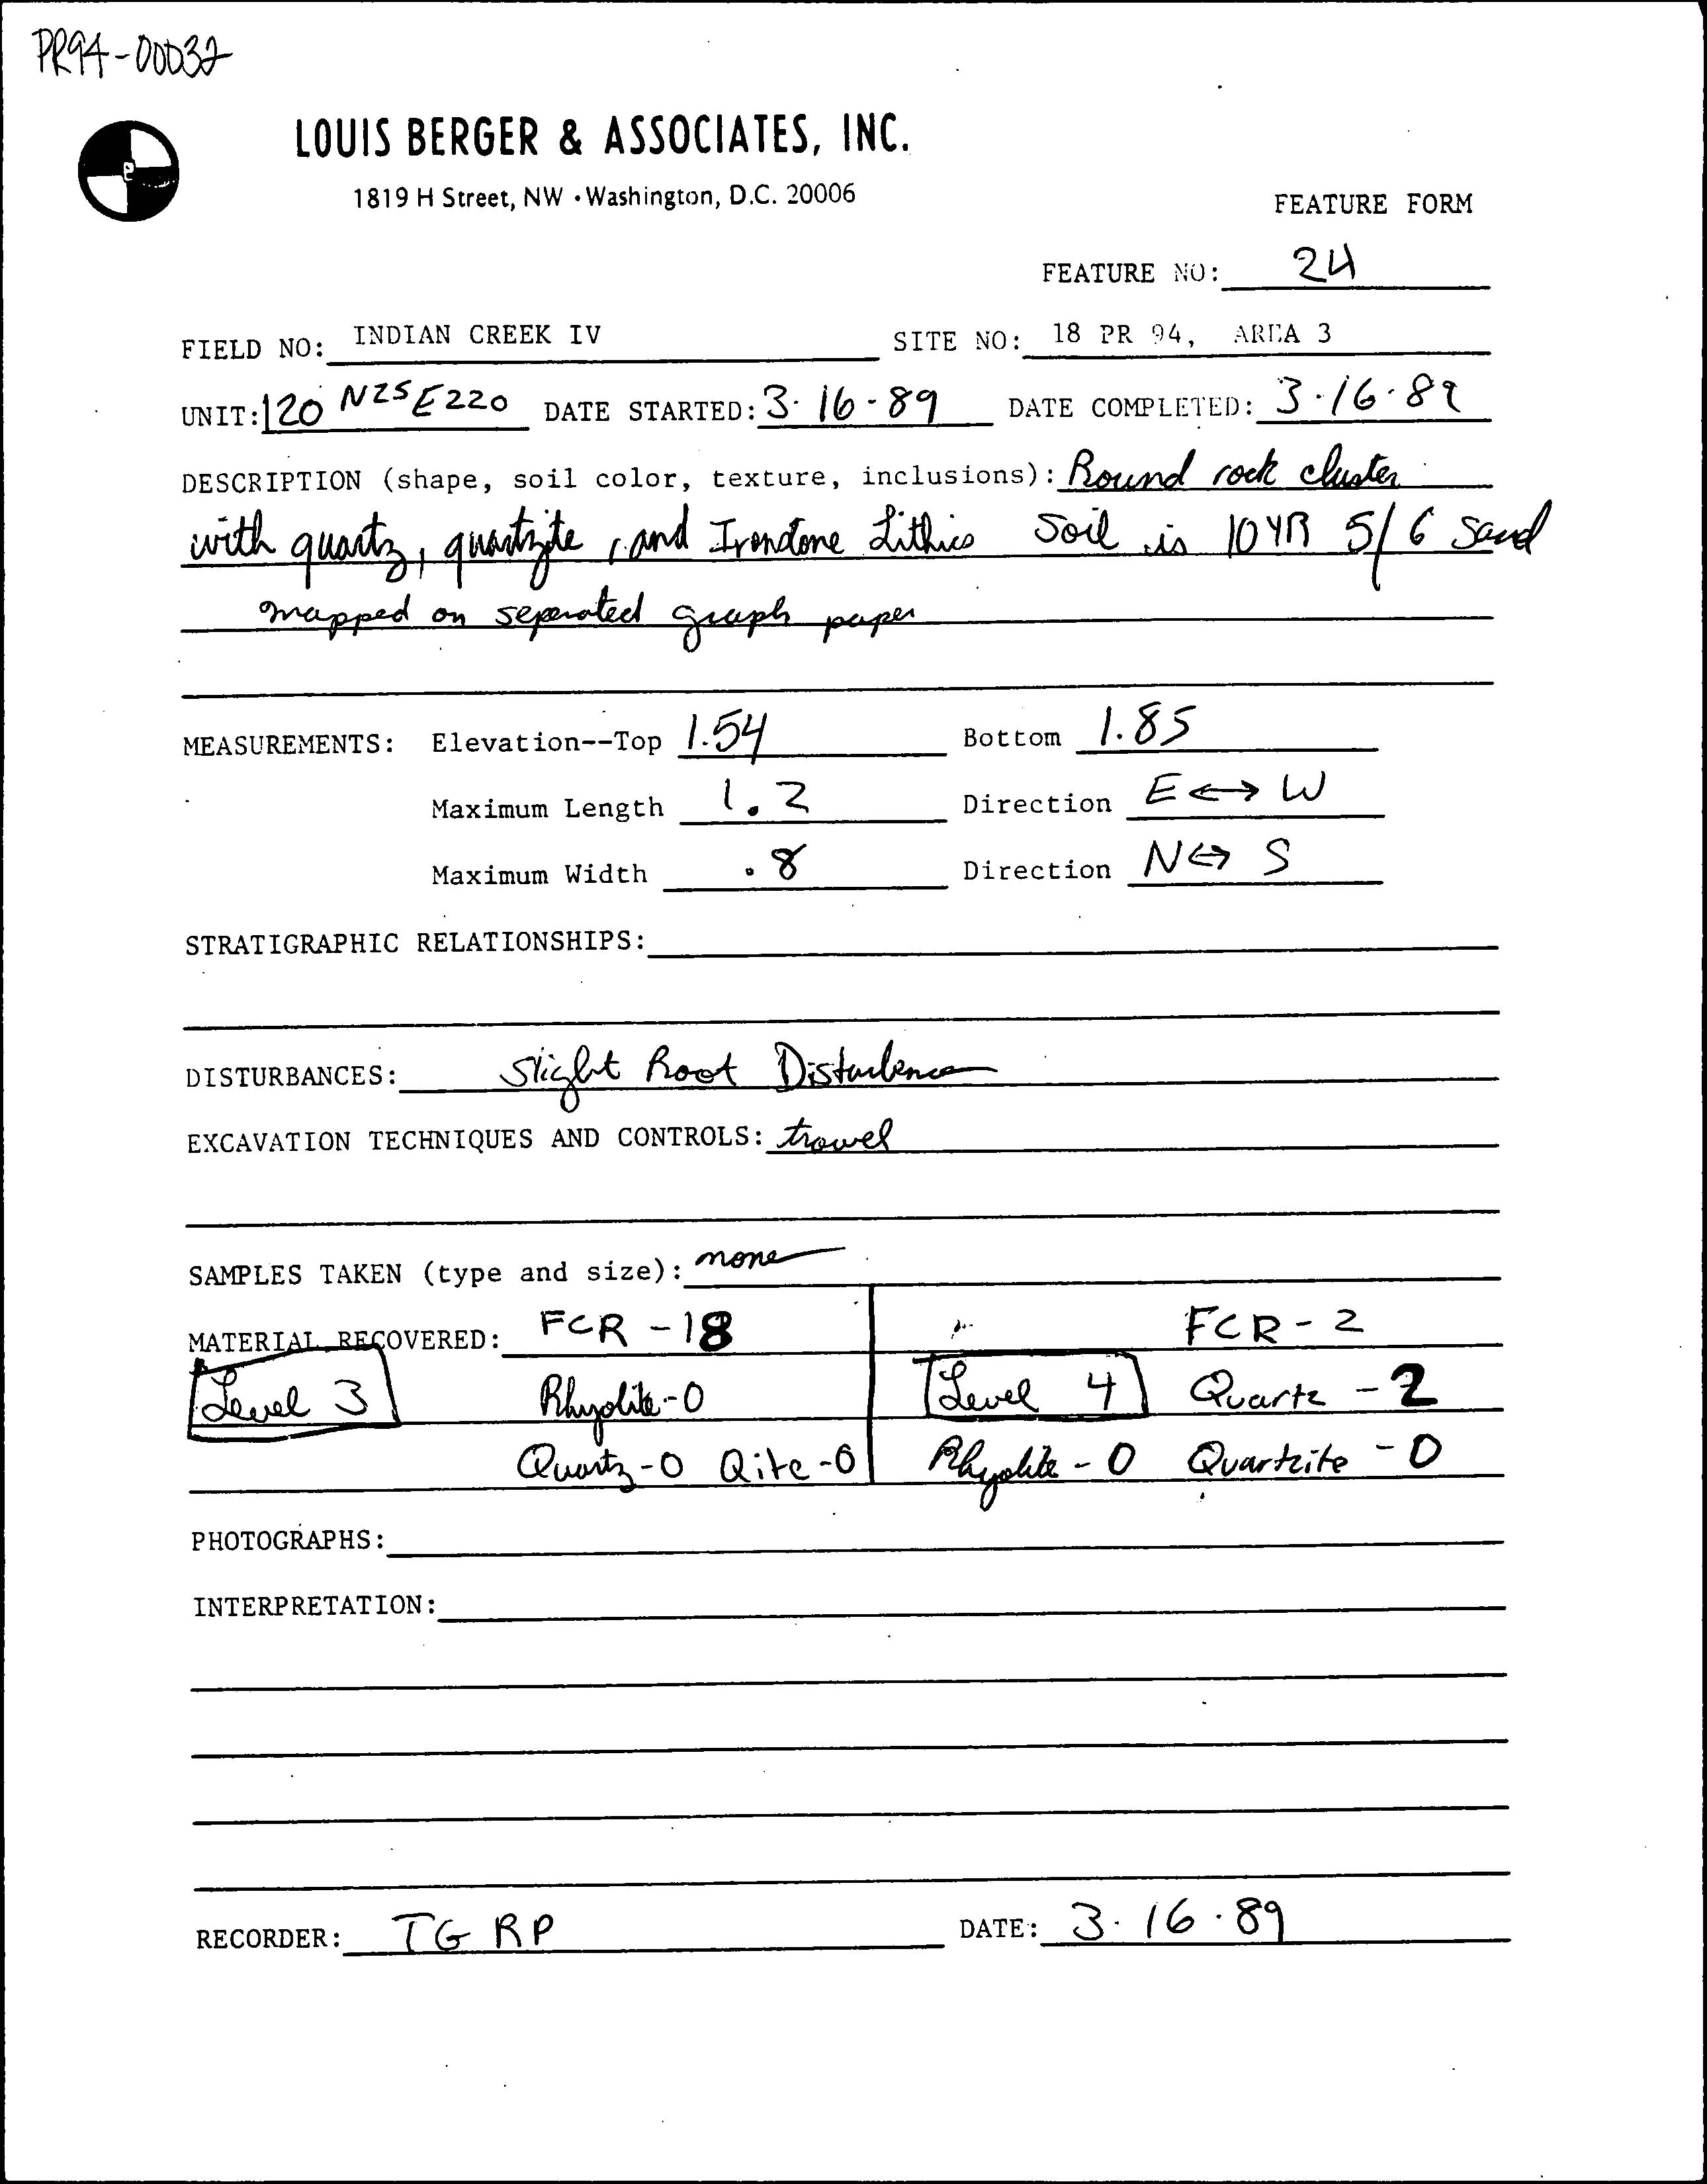 PR94-00032
LOUIS BERGER & ASSOCIATES, INC.
1819 H Street, NW • Washington, D.C. 20006
FEATURE FORM
FEATURE NO: 24
FIELD NO: INDIAN CREEK IV SITE NO: 18 PR 94, AREA 3
UNIT: 120 N25E220 DATE STARTED: 3·16-89 DATE COMPLETED: 3·16·89
DESCRIPTION (shape, soil color, texture, inclusions): Round rock cluster
with quartz, quartzite, and Irondtone Lithics Soil is 10YR 5/6 Sand
mapped on seperated graph paper
MEASUREMENTS: Elevation--Top 1.54 Bottom 1.85
Maximum Length 1.2 Direction E↔W
Maximum Width .8 Direction N↔S
STRATIGRAPHIC RELATIONSHIPS:
DISTURBANCES: Slight Root Disturbence
EXCAVATION TECHNIQUES AND CONTROLS: trowel
SAMPLES TAKEN (type and size): none
MATERIAL RECOVERED: FCR - 18 FCR - 2
Level 3 Rhyolite-0 Level 4 Quartz - 2
Quartz-0 Qite-0 Rhyolite - 0 Quartzite - 0
PHOTOGRAPHS:
INTERPRETATION:
RECORDER: TG RP DATE: 3·16·89